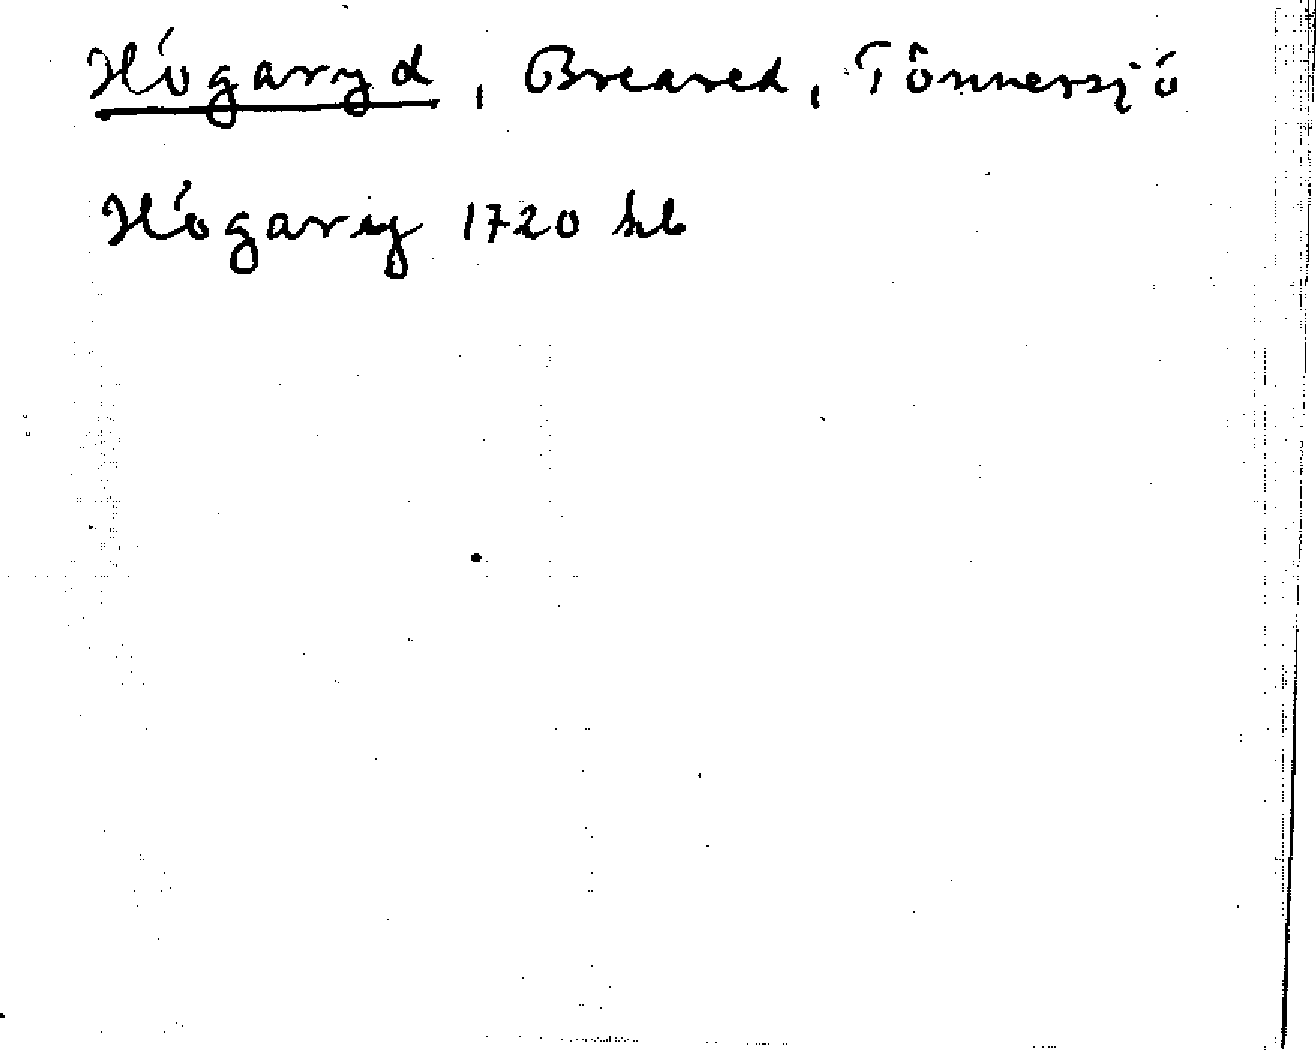 Högaryd, Breared, Tönnersjö
Högarey 1720 hb